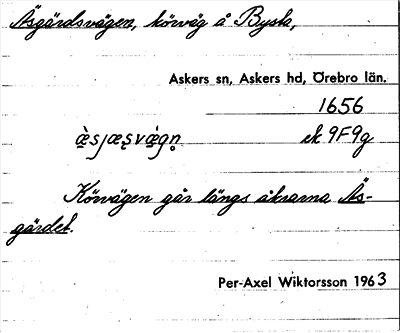 Äsgärdsvägen, körväg å Bysta,
Askers sn, Askers hd, Örebro län.
1656
æ̀sjæʂvæ̀gn̥ ek 9F9g
Körvägen går längs åkrarna Äs-
gärdet.
Per-Axel Wiktorsson 1963